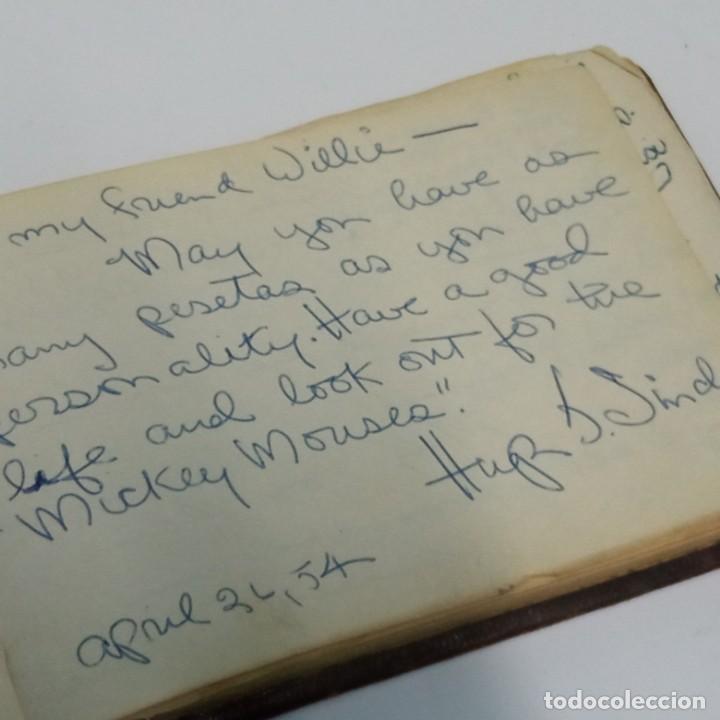 my friend Willie —
May you have as
many pesetas as you have
personality. Have a good
life and look out for the
"Mickey Mouses".
Hugh S.
april 26, 54
todocoleccion